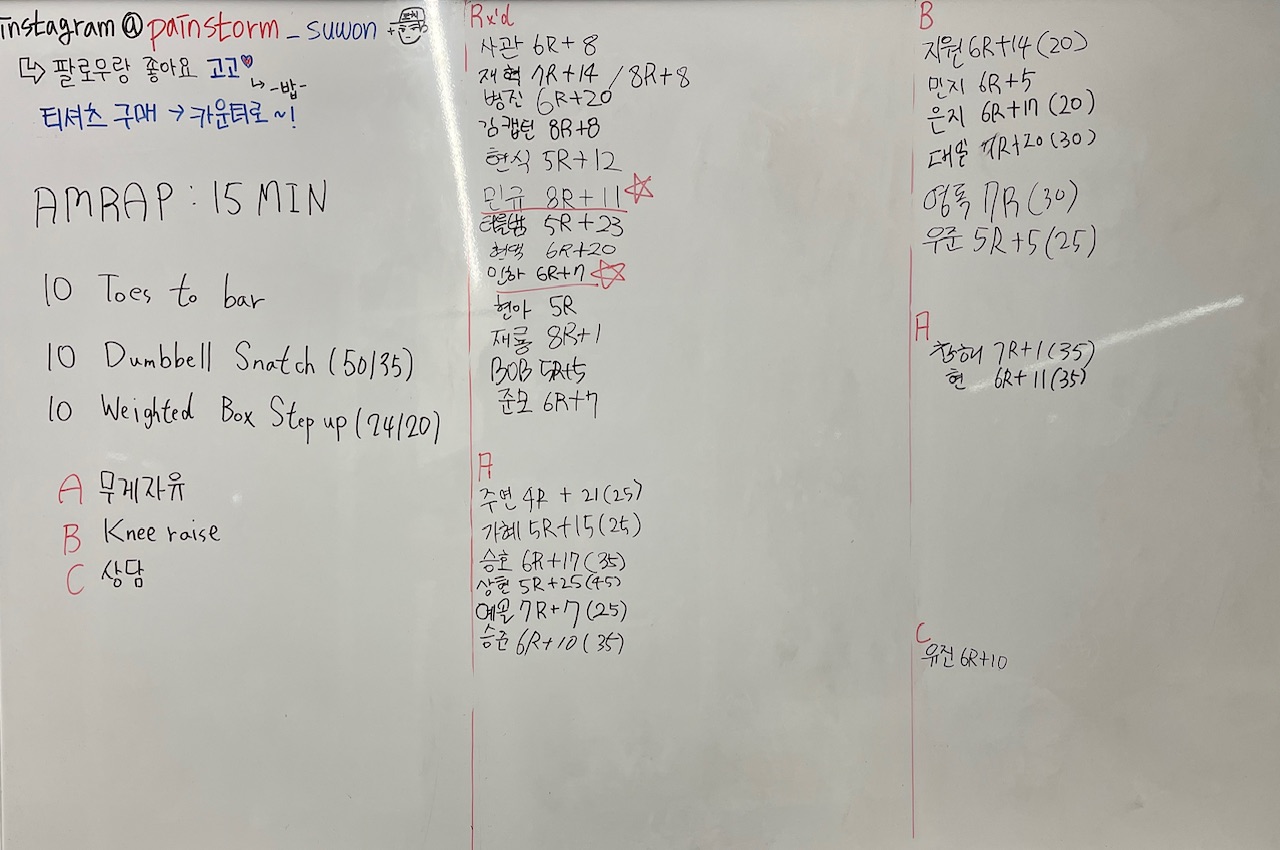 instagram@painstorm_suwon +
↳ 팔로우랑 좋아요 고고♥
↳ -밥-
티셔츠 구매 → 카운터로~!
AMRAP : 15 MIN
10 Toes to bar
10 Dumbbell Snatch (50/35)
10 Weighted Box Step up (24/20)
A 무게자유
B Knee raise
C 상담
Rx'd
사관 6R+8
재혁 7R+14 / 8R+8
병진 6R+20
김캡틴 8R+8
현식 5R+12
민규 8R+11 ☆
5R+23
현덕 6R+20
인하 6R+7 ☆
현아 5R
재룡 8R+1
BOB 5R+5
준모 6R+7
A
주연 4R + 21(25)
가혜 5R+15(25)
승호 6R+17(35)
상현 5R+25(45)
예솔 7R+7(25)
승준 6R+10(35)
B
지원 6R+14(20)
민지 6R+5
은지 6R+17(20)
대일 7R+20(30)
영록 7R(30)
우준 5R+5(25)
A
7R+1(35)
현 6R+11(35)
C
유진 6R+10